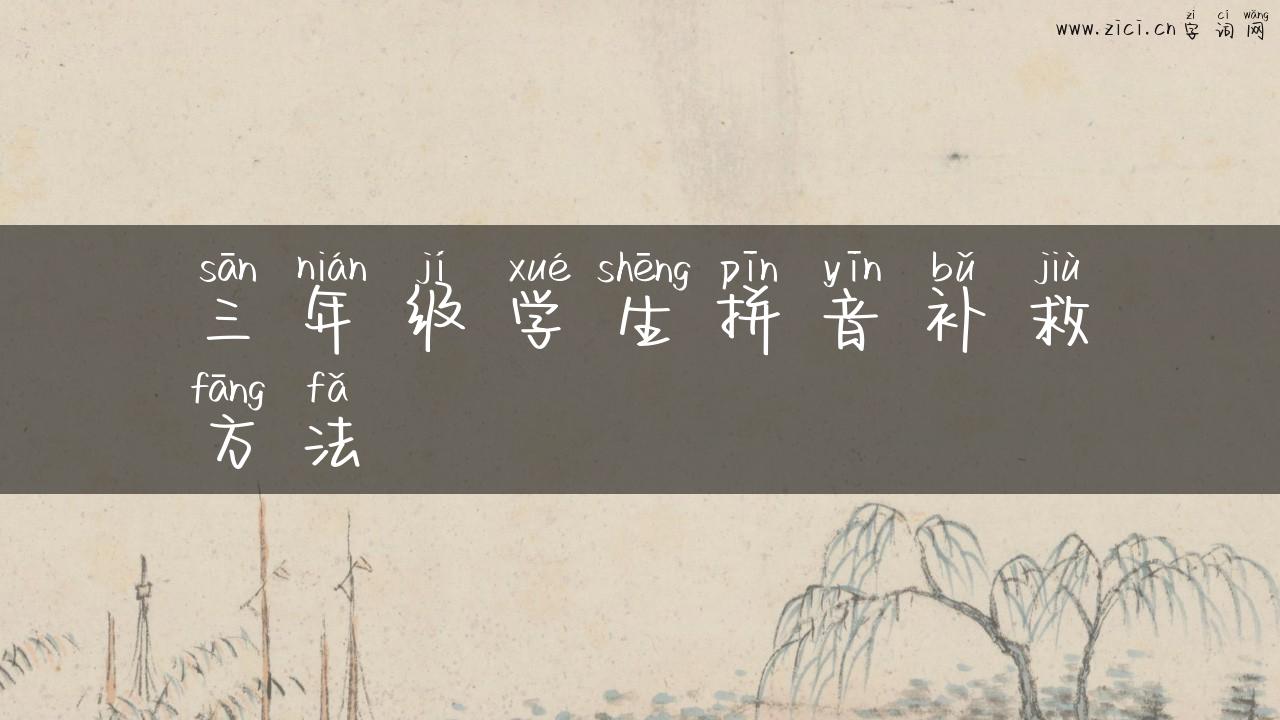 zì cí wǎng
www.zici.cn 字词网
sān nián jí xué shēng pīn yīn bǔ jiù
三年级学生拼音补救
fāng fǎ
方法